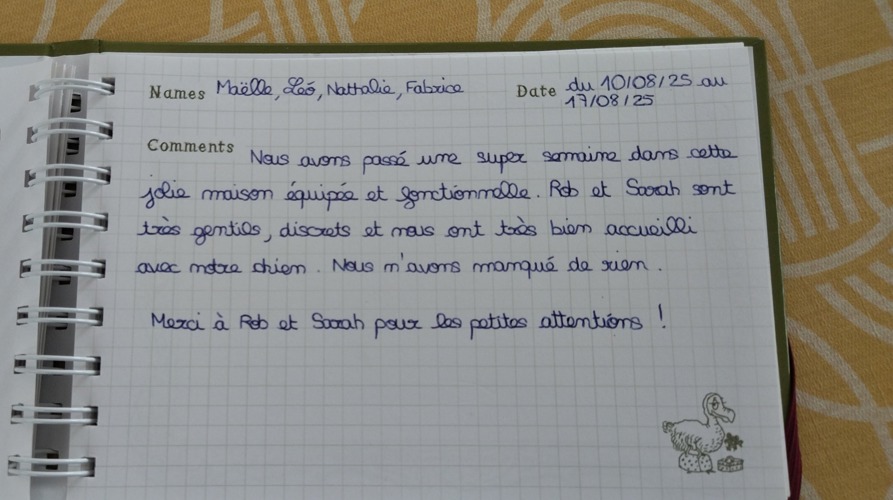 Names Maëlle, Léo, Nathalie, Fabrice Date du 10/08/25 au
17/08/25
Comments Nous avons passé une super semaine dans cette
jolie maison équipée et fonctionnelle. Rob et Sarah sont
très gentils, discrets et nous ont très bien accueilli
avec notre chien. Nous n'avons manqué de rien.
Merci à Rob et Sarah pour les petites attentions !